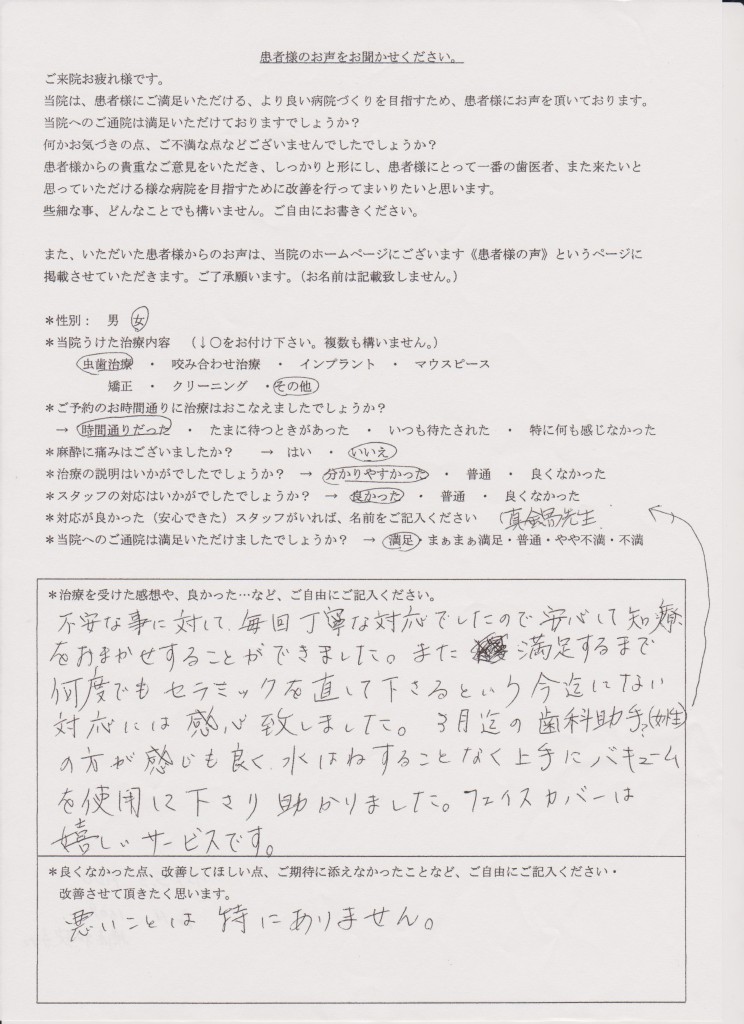 患者様のお声をお聞かせください。
ご来院お疲れ様です。
当院は、患者様にご満足いただける、より良い病院づくりを目指すため、患者様にお声を頂いております。
当院へのご通院は満足いただけておりますでしょうか？
何かお気づきの点、ご不満な点などございませんでしたでしょうか？
患者様からの貴重なご意見をいただき、しっかりと形にし、患者様にとって一番の歯医者、また来たいと
思っていただける様な病院を目指すために改善を行ってまいりたいと思います。
些細な事、どんなことでも構いません。ご自由にお書きください。
また、いただいた患者様からのお声は、当院のホームページにございます《患者様の声》というページに
掲載させていただきます。ご了承願います。（お名前は記載致しません。）
＊性別： 男 女
＊当院うけた治療内容 （↓〇をお付け下さい。複数も構いません。）
虫歯治療 ・ 咬み合わせ治療 ・ インプラント ・ マウスピース
矯正 ・ クリーニング ・その他
＊ご予約のお時間通りに治療はおこなえましたでしょうか？
→ 時間通りだった ・ たまに待つときがあった ・ いつも待たされた ・ 特に何も感じなかった
＊麻酔に痛みはございましたか？ → はい ・ いいえ
＊治療の説明はいかがでしたでしょうか？ → 分かりやすかった ・ 普通 ・ 良くなかった
＊スタッフの対応はいかがでしたでしょうか？ → 良かった ・ 普通 ・ 良くなかった
＊対応が良かった（安心できた）スタッフがいれば、名前をご記入ください 真鍋先生
＊当院へのご通院は満足いただけましたでしょうか？ → 満足・まぁまぁ満足・普通・やや不満・不満
＊治療を受けた感想や、良かった…など、ご自由にご記入ください。
不安な事に対して、毎回丁寧な対応でしたので安心して知療
をおまかせすることができました。また 満足するまで
何度でもセラミックを直して下さるという今迄にない
対応には感心致しました。3月迄の歯科助手?(女性)
の方が感じも良く、水はねすることなく上手にバキューム
を使用して下さり助かりました。フェイスカバーは
嬉しいサービスです。
＊良くなかった点、改善してほしい点、ご期待に添えなかったことなど、ご自由にご記入ください・
改善させて頂きたく思います。
悪いことは特にありません。